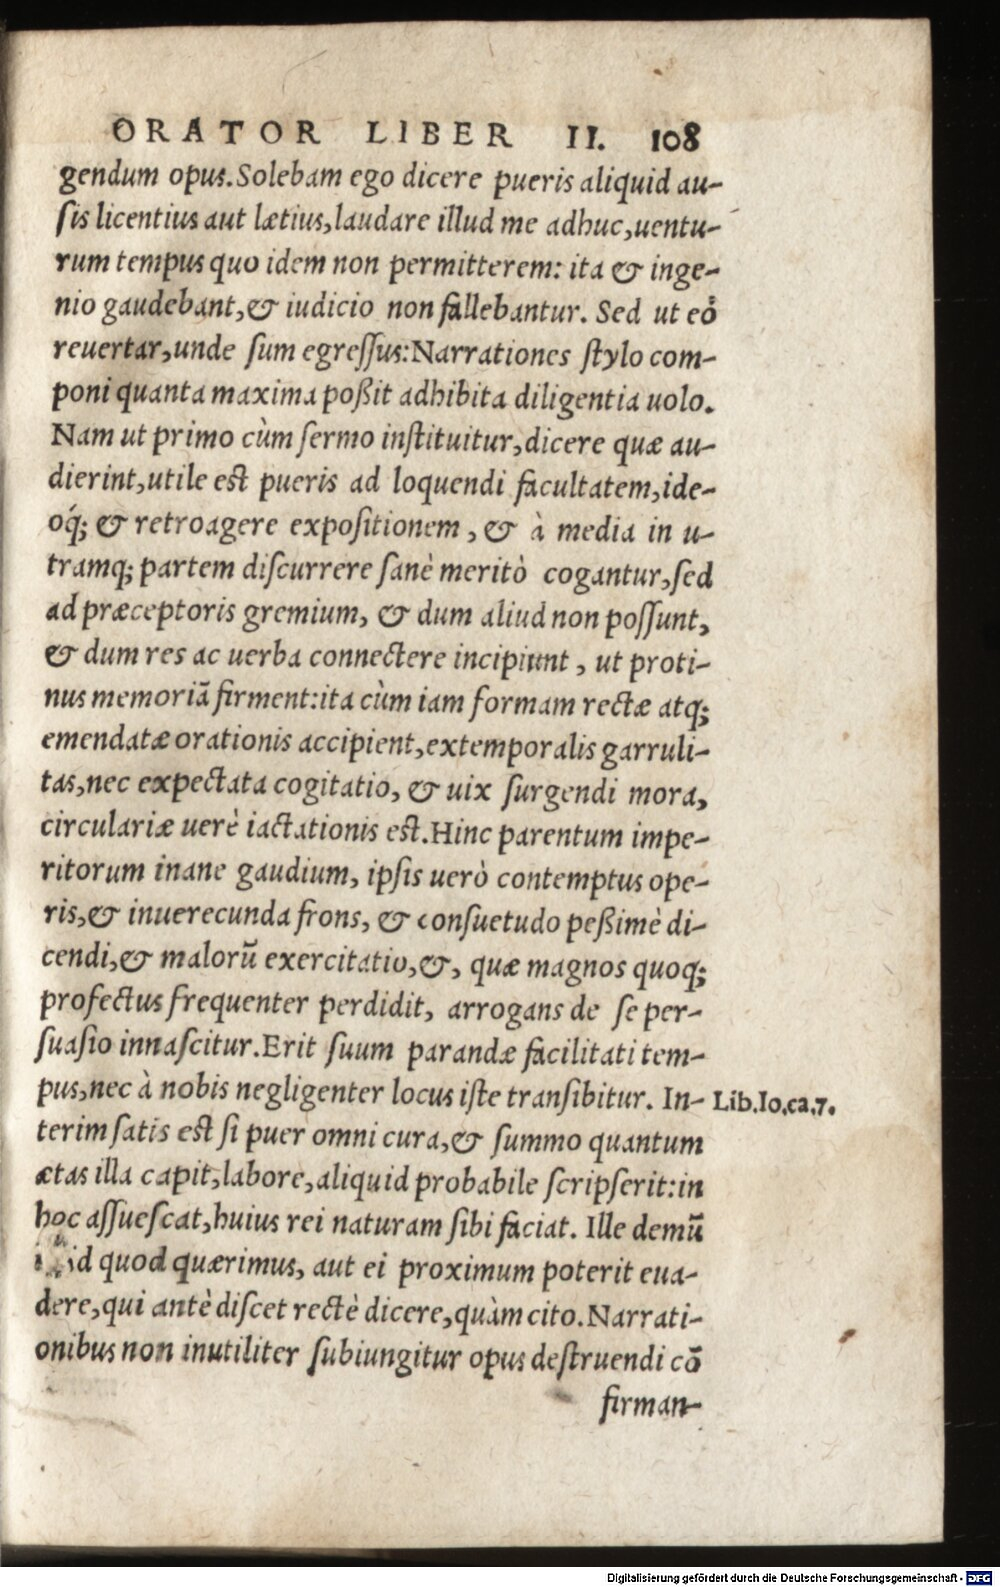 ORATOR LIBER II. 108
gendum opus. Solebam ego dicere pueris aliquid au-
sis licentius aut lætius, laudare illud me adhuc, uentu-
rum tempus quo idem non permitterem: ita & inge-
nio gaudebant, & iudicio non fallebantur. Sed ut eò
reuertar, unde sum egressus: Narrationes stylo com-
poni quanta maxima poßit adhibita diligentia uolo.
Nam ut primo cùm sermo instituitur, dicere quæ au-
dierint, utile est pueris ad loquendi facultatem, ide-
oq́; & retroagere expositionem, & à media in u-
tramq; partem discurrere sanè meritò cogantur, sed
ad præceptoris gremium, & dum aliud non possunt,
& dum res ac uerba connectere incipiunt, ut proti-
nus memoriā firment: ita cùm iam formam rectæ atq;
emendatæ orationis accipient, extemporalis garruli-
tas, nec expectata cogitatio, & uix surgendi mora,
circulariæ uerè iactationis est. Hinc parentum impe-
ritorum inane gaudium, ipsis uerò contemptus ope-
ris, & inuerecunda frons, & consuetudo peßimè di-
cendi, & malorū exercitatio, &, quæ magnos quoq;
profectus frequenter perdidit, arrogans de se per-
suasio innascitur. Erit suum parandæ facilitati tem-
pus, nec à nobis negligenter locus iste transibitur. In- Lib. Io. ca. 7.
terim satis est si puer omni cura, & summo quantum
ætas illa capit, labore, aliquid probabile scripserit: in
hoc assuescat, huius rei naturam sibi faciat. Ille demū
id quod quærimus, aut ei proximum poterit eua-
dere, qui antè discet rectè dicere, quàm cito. Narrati-
onibus non inutiliter subiungitur opus destruendi cō
firman-
Digitalisierung gefördert durch die Deutsche Forschungsgemeinschaft - DFG